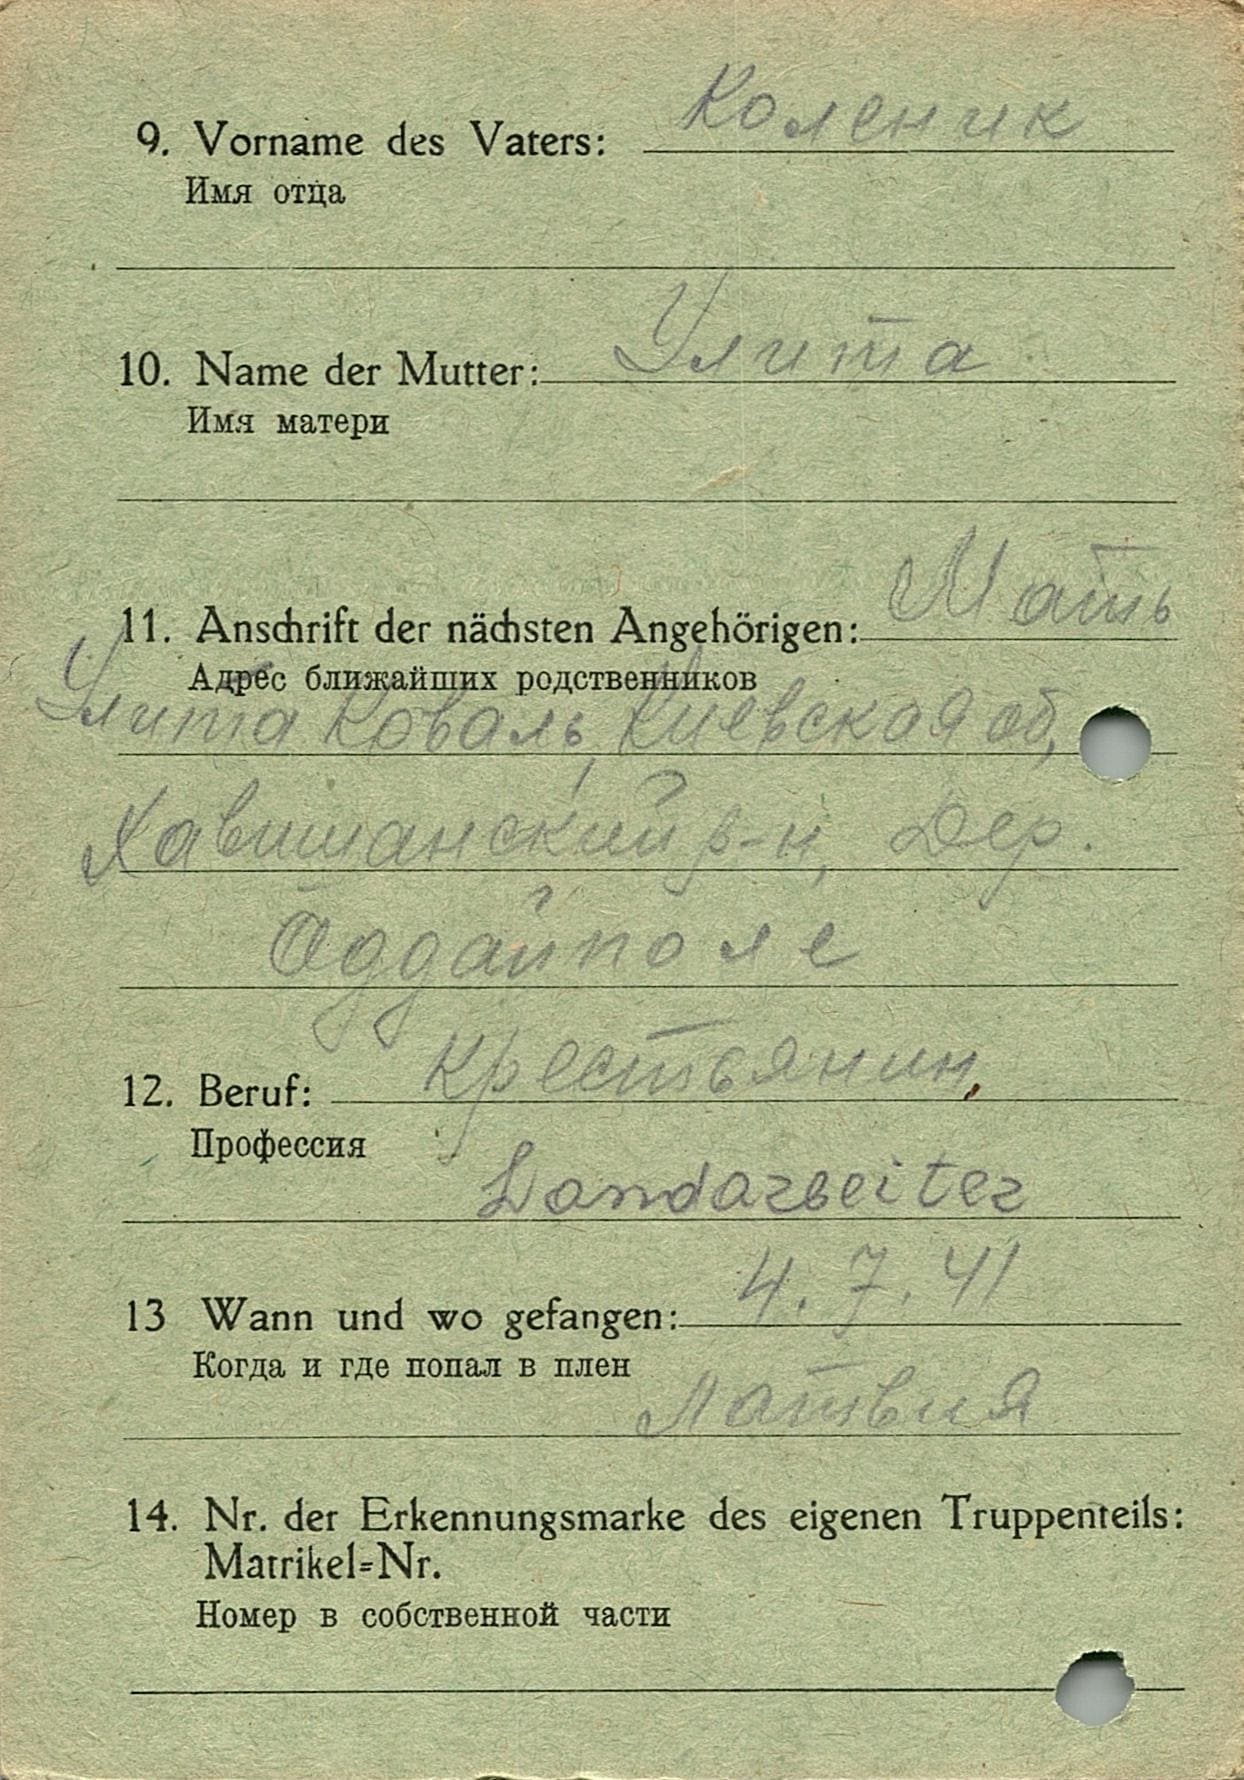 9. Vorname des Vaters: Коленик
Имя отца
10. Name der Mutter: Улита
Имя матери
11. Anschrift der nächsten Angehörigen: Мать
Адрес ближайших родственников
Улита Коваль, Киевская об,
Хавишанский р-н, Дер.
Оддайполе
12. Beruf: Крестьянин,
Профессия
Landarbeiter
13 Wann und wo gefangen: 4.7.41
Когда и где попал в плен
Латвия
14. Nr. der Erkennungsmarke des eigenen Truppenteils:
Matrikel=Nr.
Номер в собственной части